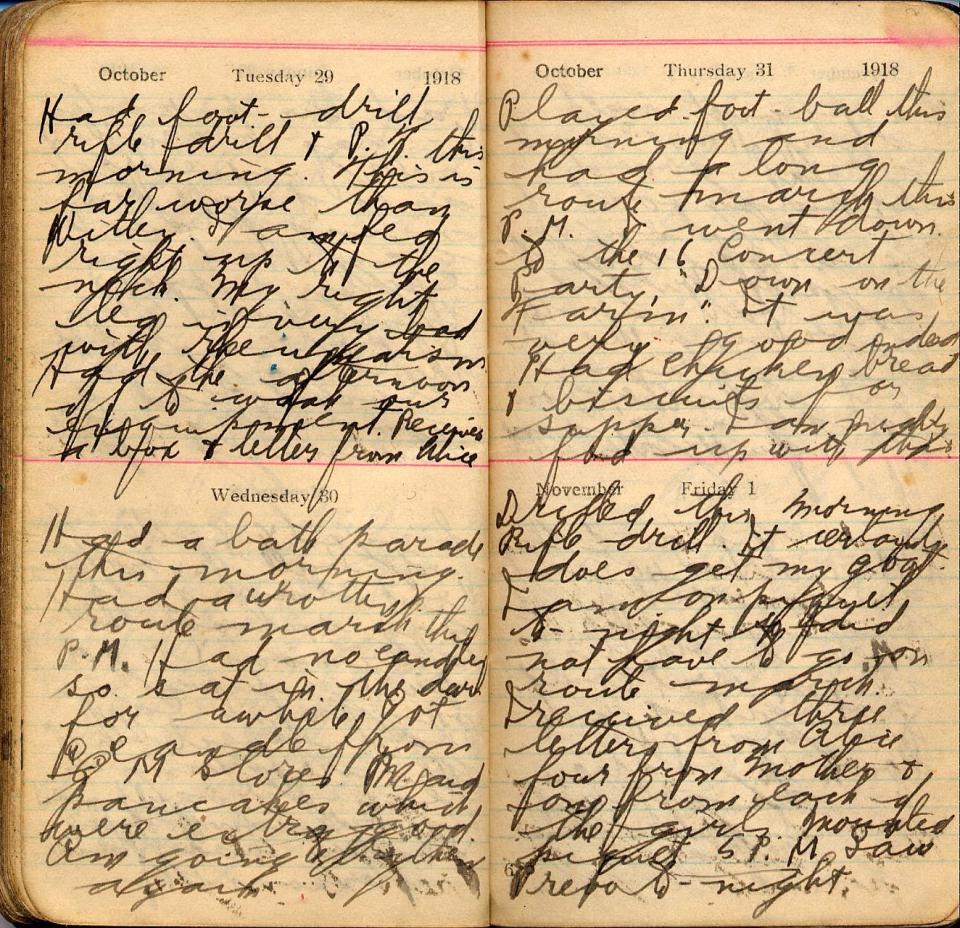 October Tuesday 29 1918
Had foot-drill
rifle drill & P.T. this
morning. This is
far worse than
Witley. I am fed
right up to the
neck. My right
leg is very bad
with rheumatism
Had the afternoon
off to wash our
equipment. Received
a box & letter from Alice
Wednesday 30
Had a bath parade
this morning.
Had a
route march this
P.M. Had no candles
so sat in the dark
for awhile. Got
a candle from
Q M Stores. Made
pancakes which
were extra good.
Am going
again
October Thursday 31 1918
Played foot-ball this
morning and
had a long
route march this
P.M. I went down
to the 16 Concert
Party, "Down on the
Farm". It was
very good indeed
Had chicken bread
& biscuits for
supper. I am pretty
fed up with this
November Friday 1
Drilled this morning
Rifle drill. It certainly
does get my goat.
I am on piquet
to-night so did
not have to go on
route march.
I received three
letters from Alice
four from Mother &
one from each of
the girls. Mounted
piquet 5 P.M. Saw
to-night.